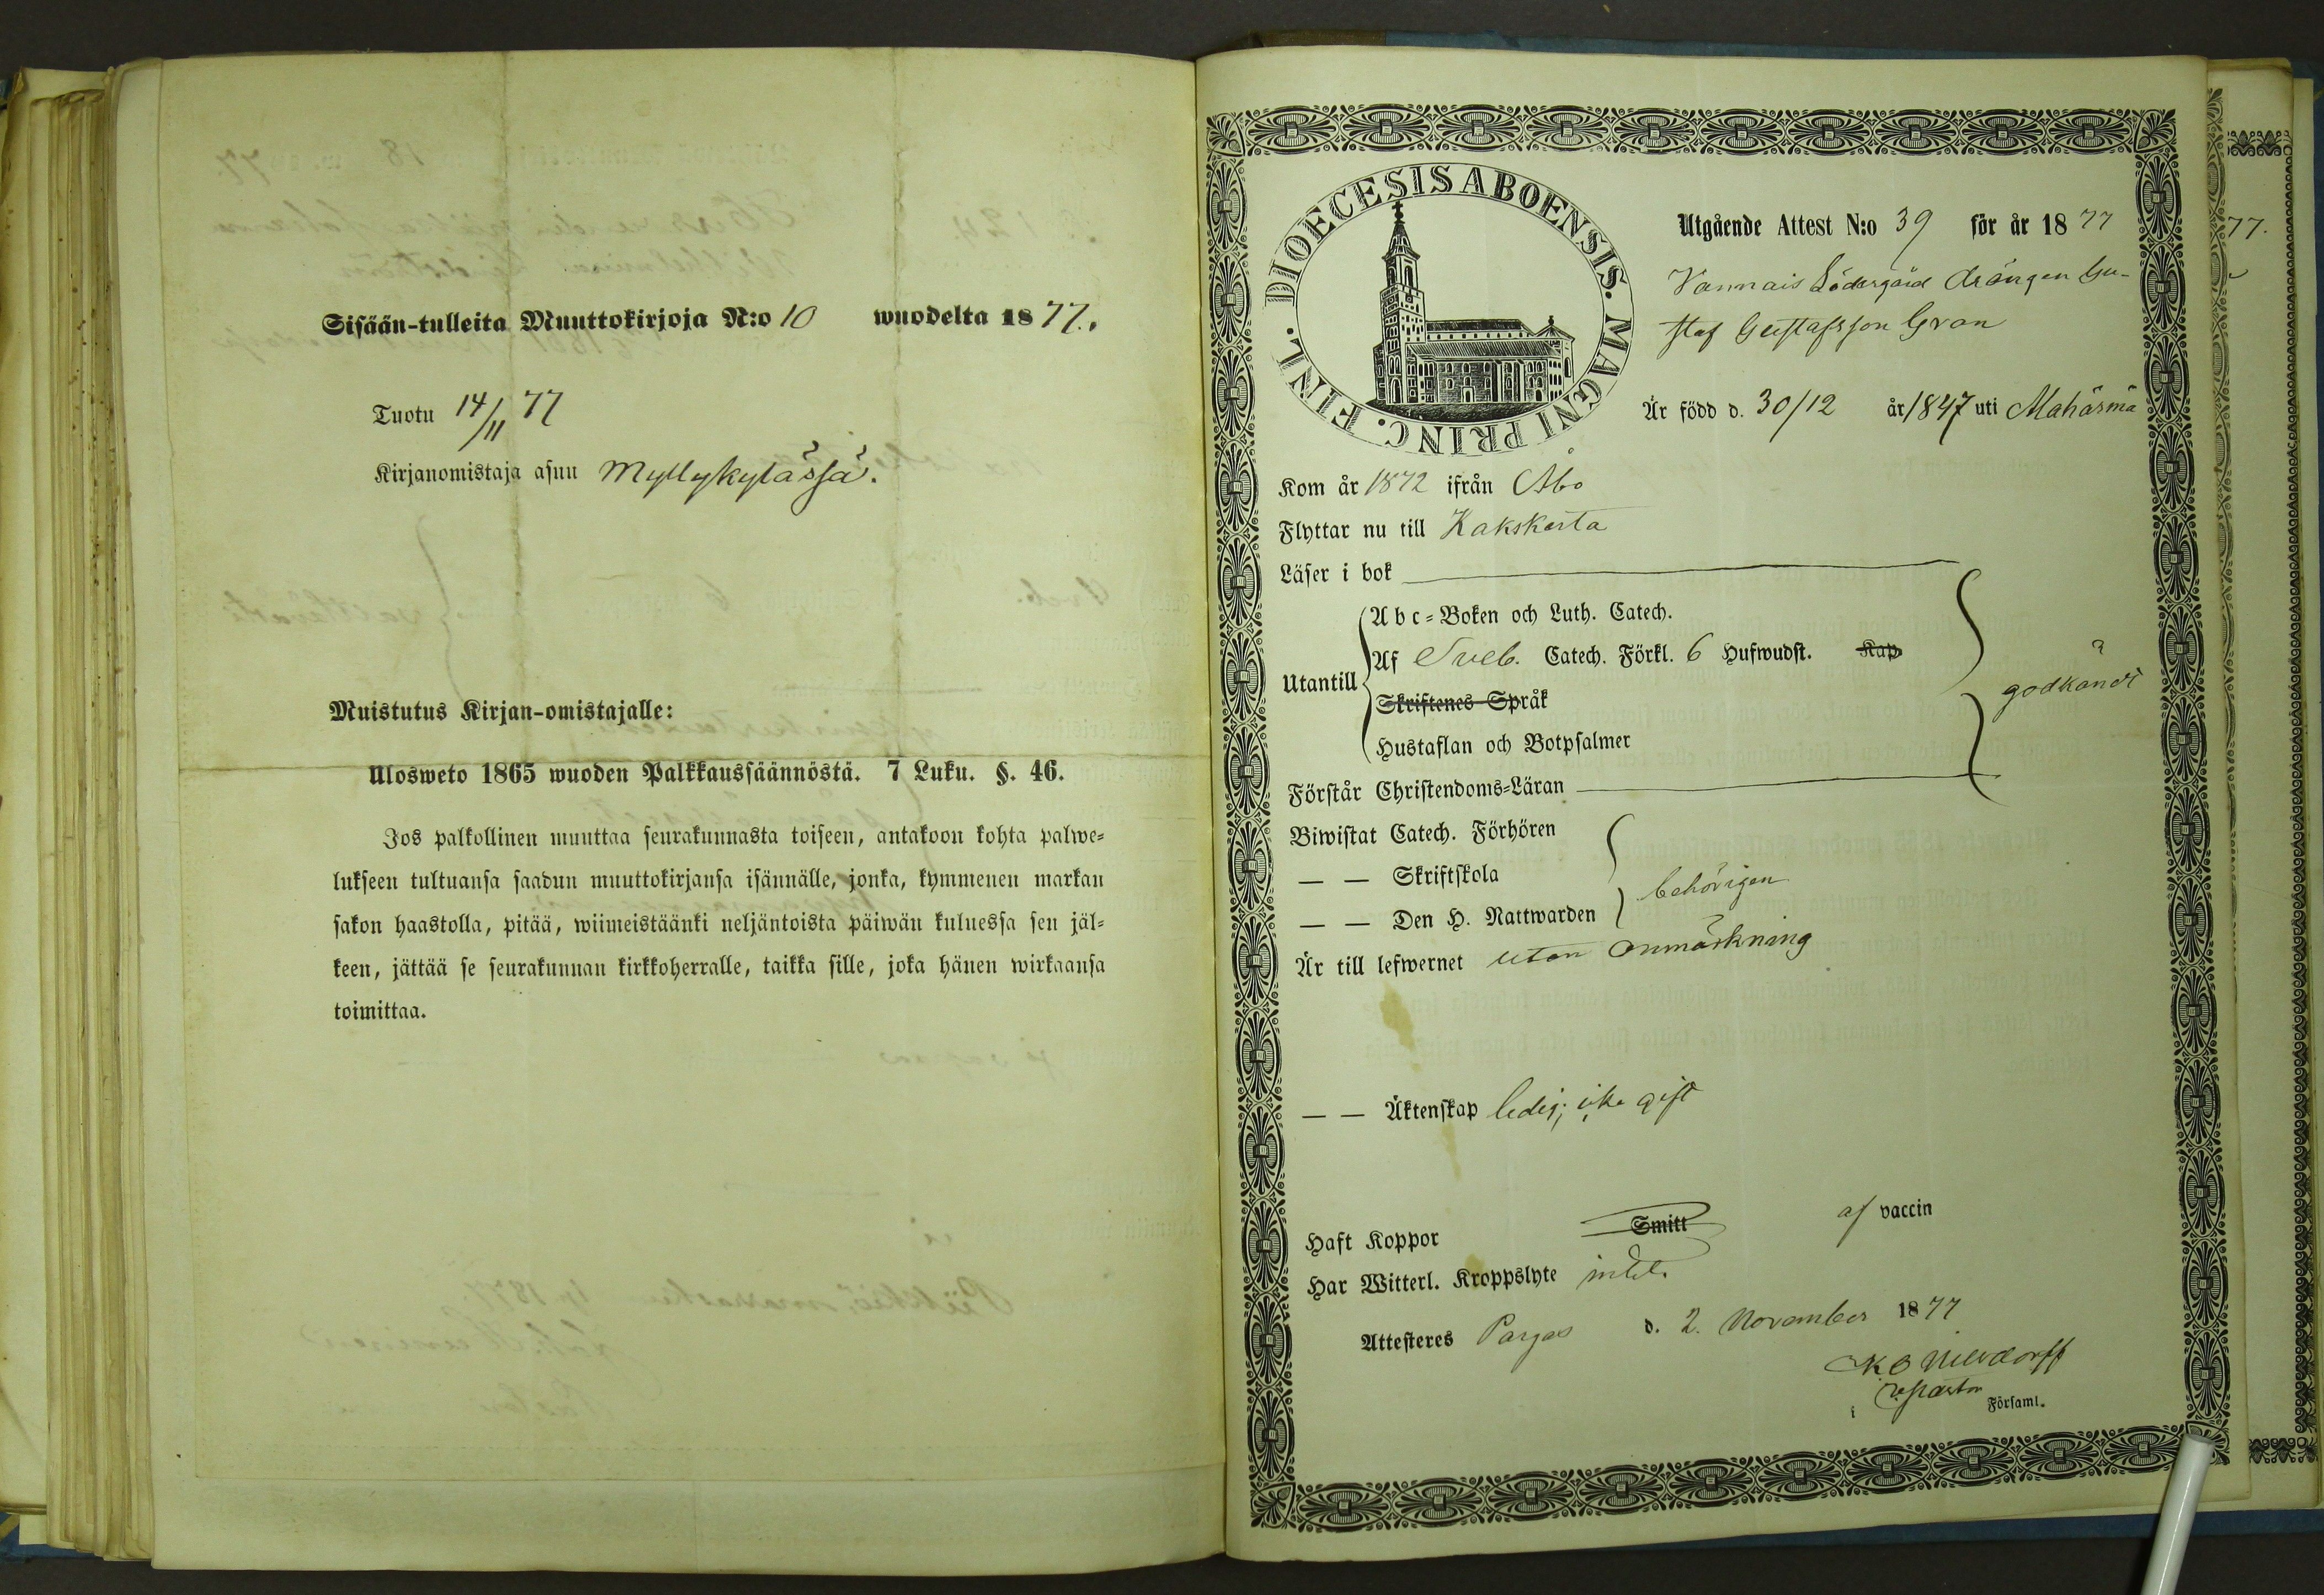 Sisään-tulleita Muuttokirjoja N:o 10 wuodelta 1877.
Tuotu 14/11 77
Kirjanomistaja asuu Myllykylässä.
Muistutus Kirjan-omistajalle:
Ulosweto 1865 wuoden Palkkaussäännöstä. 7 Luku. §. 46.
Jos palkollinen muuttaa seurakunnasta toiseen, antakoon kohta palwe=
lukseen tultuansa saadun muuttokirjansa isännälle, jonka, kymmenen markan
sakon haastolla, pitää, wiimeistäänki neljäntoista päiwän kuluessa sen jäl=
keen, jättää se seurakunnan kirkkoherralle, taikka sille, joka hänen wirkaansa
toimittaa.
DIOECESIS ABOENSIS. MAGNI PRINC. FINL.
Utgående Attest N:o 39 för år 1877
Vannais Södergård drängen Gu-
staf Gustafsson Gran
Är född d. 30/12 år 1847 uti
Kom år 1872 ifrån Åbo
Flyttar nu till Kakskerta
Läser i bok
Abc=Boken och Luth. Catech.
Utantill Af Sveb. Catech. Förkl. 6 Hufwudst. Kap
Skriftenes Språk
godkändt
Hustaflan och Botpsalmer
Förstår Christendoms=Läran
Biwistat Catech. Förhören
— — Skriftskola
behörigen
— — Den H. Nattwarden
Är till lefwernet utan anmärkning
— — Äktenskap ledig; icke gift
Haft Koppor Smitt af vaccin
Har Witterl. Kroppslyte intet.
Attesteres Pargas d. 2. November 1877
i Församl.
77.